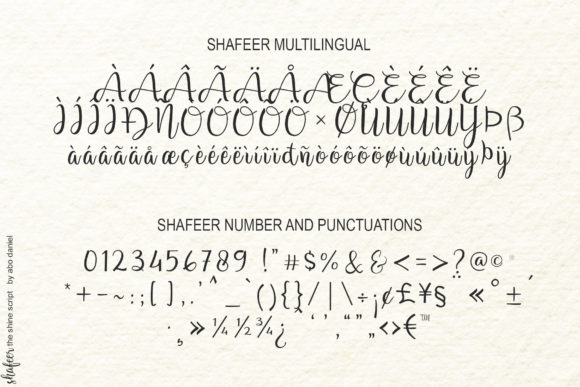 SHAFEER MULTILINGUAL
ÀÁÂÃÄÅÆÇÈÉÊË
ÌÍÎÏÐÑÒÓÔÕÖ×ØÙÚÛÜÝÞß
àáâãäåæçèéêëìíîïđñòóôõöøùúûüýþÿ
SHAFEER NUMBER AND PUNCTUATIONS
0123456789 !"#$%&& <=>?@©®
*+-~:;[],.'^_`(){}/|\÷¡¢£¥§¨«°±´
·¸»¼½¾¿ˆ‘’‚“”„‹›€™
shafeer the shine script by abo daniel